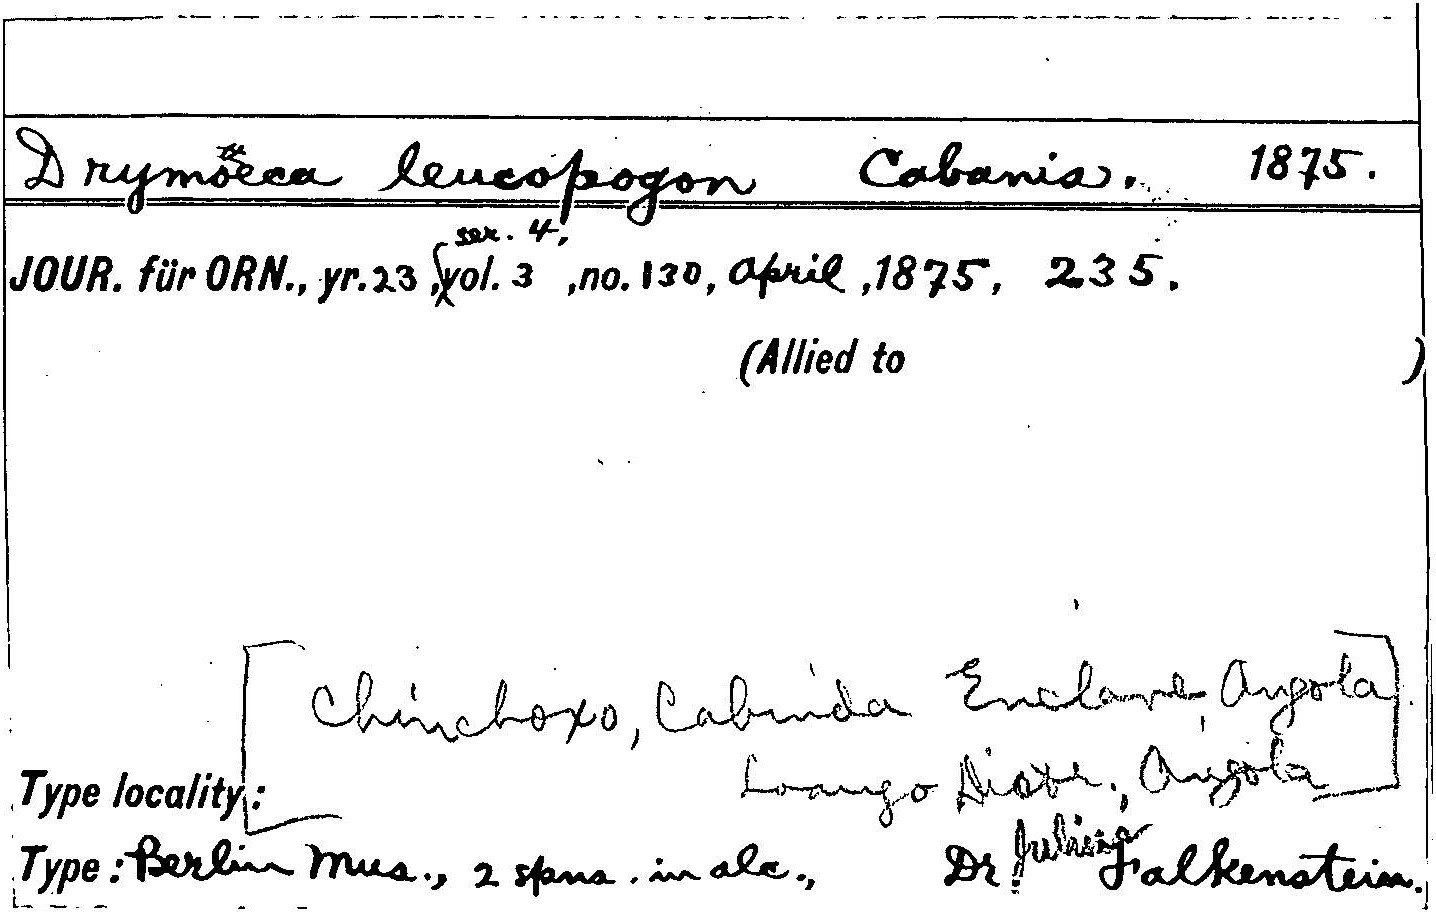 Drymoeca leucopogon Cabanis. 1875.
ser. 4,
JOUR. für ORN., yr. 23, vol. 3, no. 130, April, 1875, 235.
(Allied to )
[Chinchoxo, Cabinda Enclave, Angola
Type locality: Loango Distr., Angola]
Type: Berlin Mus., 2 spns. in alc., Dr Julius Falkenstein.